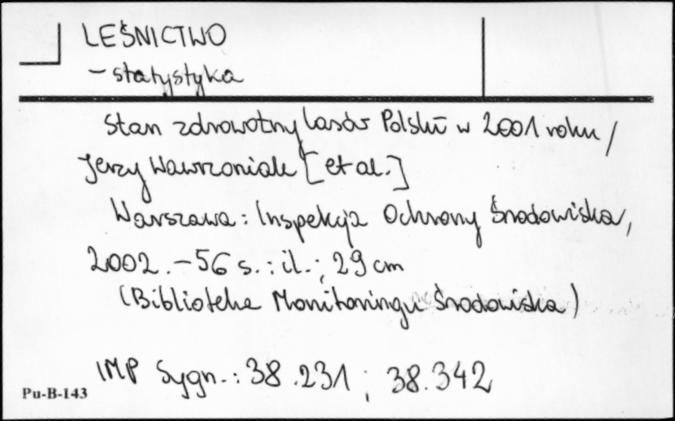 LEŚNICTWO
- statystyka
Stan zdrowotny lasów Polski w 2001 roku /
Jerzy Wawrzoniak [et al.]
Warszawa: Inspekcja Ochrony Środowiska,
2002. - 56 s. : il. ; 29 cm
(Biblioteka Monitoringu Środowiska)
IMP Sygn.: 38.231 ; 38.342
Pu-B-143